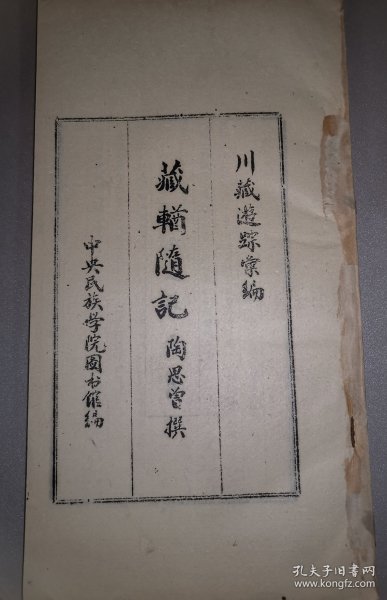 川藏遊踪彙編
藏輶隨記 陶思曾撰
中央民族学院图书馆编
孔夫子旧书网
www.kongfz.com